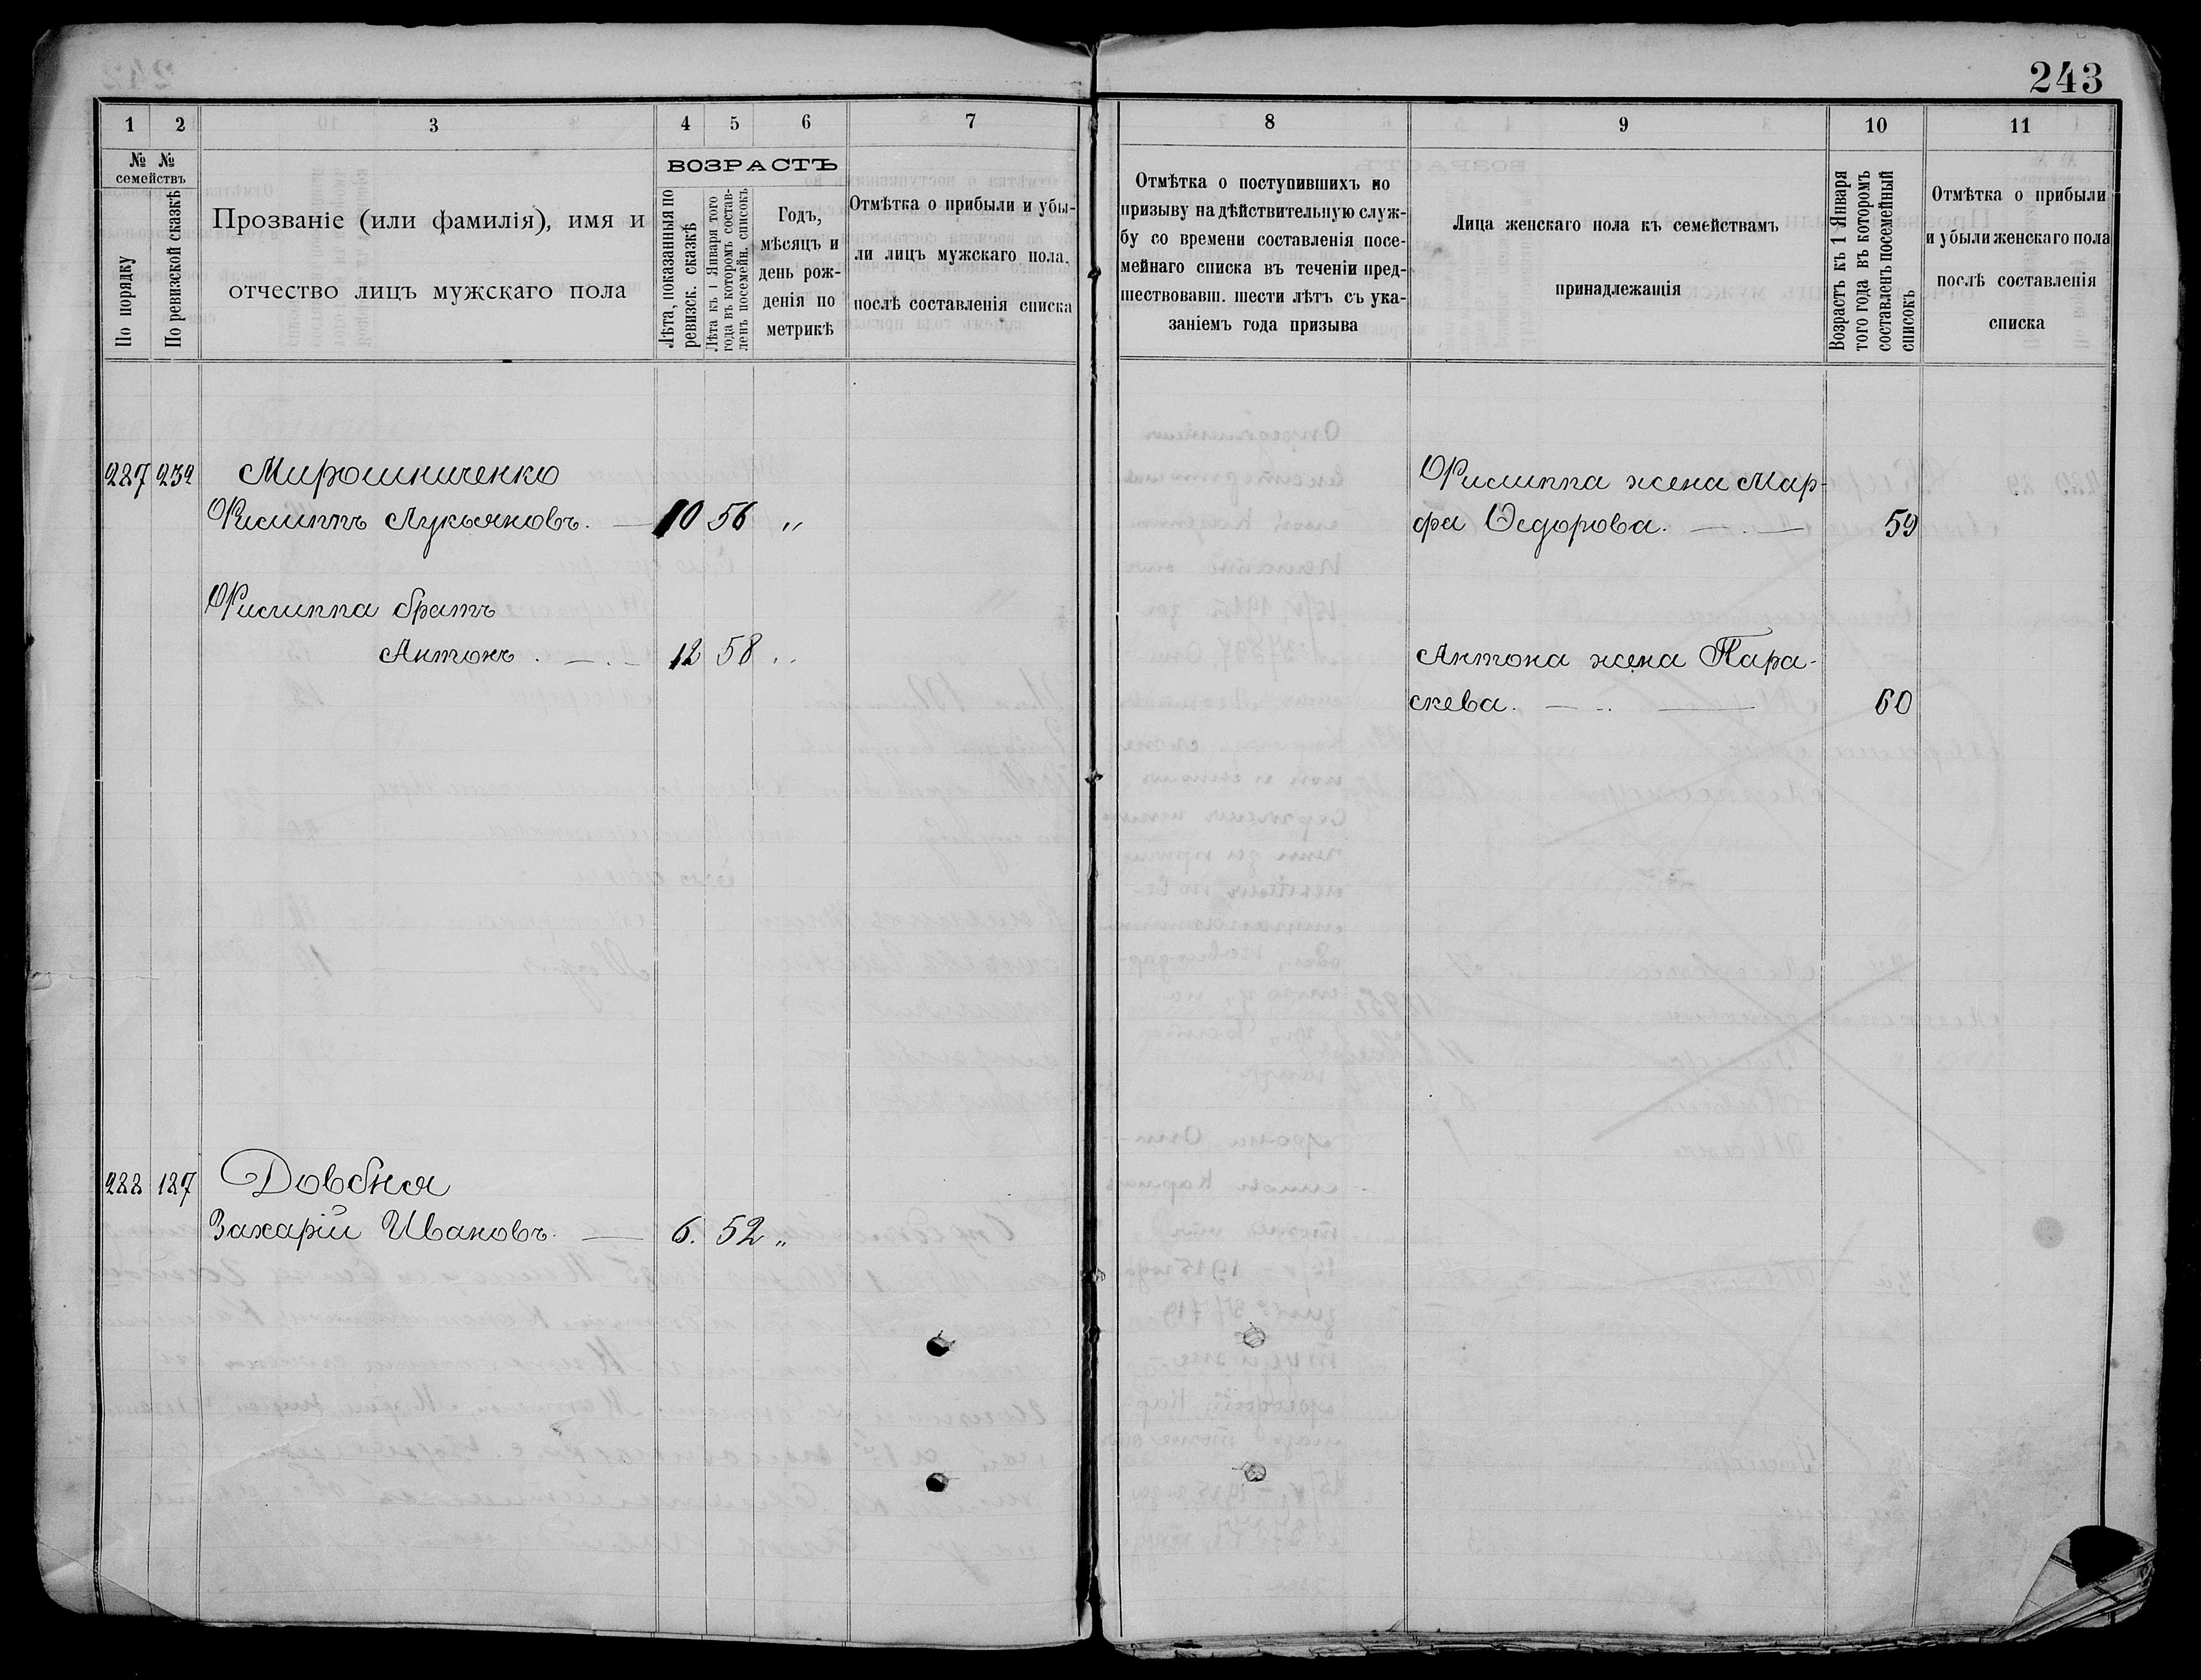 243
1 2 3 4 5 6 7
№ №
семействъ
По порядку
По ревизской сказкѣ
Прозваніе (или фамилія), имя и
отчество лицъ мужскаго пола
ВОЗРАСТЪ
Лѣта, показанныя по
ревизск. сказкѣ
Лѣта къ 1 Января того
года въ которомъ состав-
ленъ посемейн. списокъ
Годъ,
мѣсяцъ и
день рож-
денія по
метрикѣ
Отмѣтка о прибыли и убы-
ли лицъ мужскаго пола,
послѣ составленія списка
287 232 Мирошниченко
Филиппъ Лукьяновъ. — 10 56 „
Филиппа братъ
Антонъ . — . — 12 58 „
288 187 Довбня
Захарій Ивановъ. — 6. 52 „
8 9 10 11
Отмѣтка о поступившихъ по
призыву на дѣйствительную служ-
бу со времени составленія посе-
мейнаго списка въ теченіи пред-
шествовавш. шести лѣтъ съ ука-
заніемъ года призыва
Лица женскаго пола къ семействамъ
принадлежащія
Возрастъ къ 1 Января
того года въ которомъ
составленъ посемейный
списокъ
Отмѣтка о прибыли
и убыли женскаго пола
послѣ составленія
списка
Филиппа жена Мар-
фа Ѳедорова. — . — 59
Антона жена Пара-
скева. — .. — 60